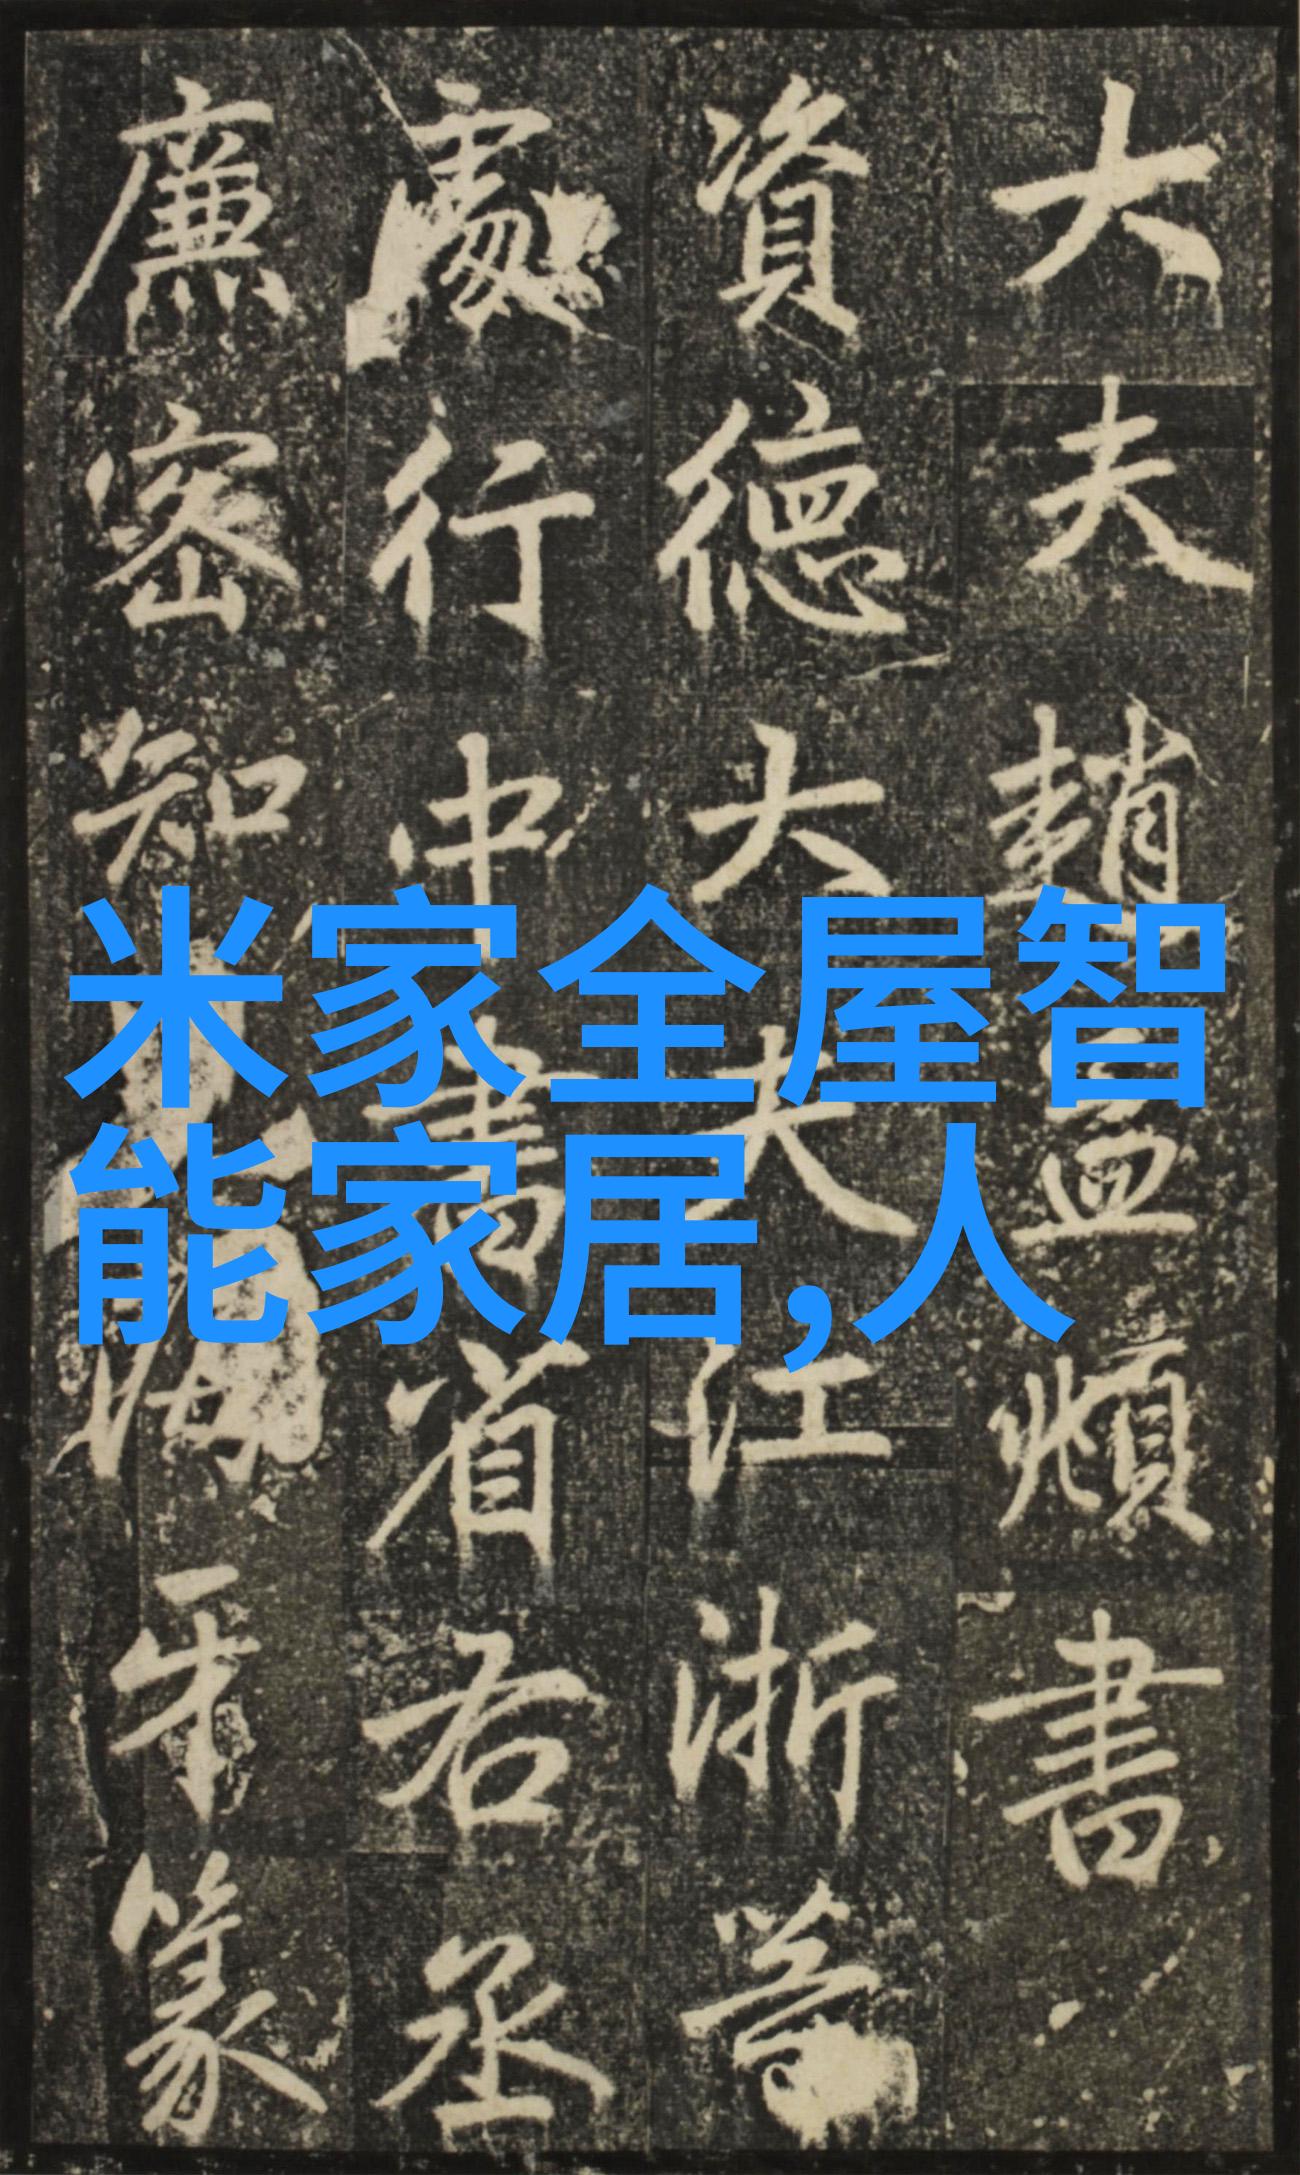 大夫趙孟頫書
資德大夫江浙等
處行中書省右丞
廉密知海牙篆
米家全屋智
能家居,人